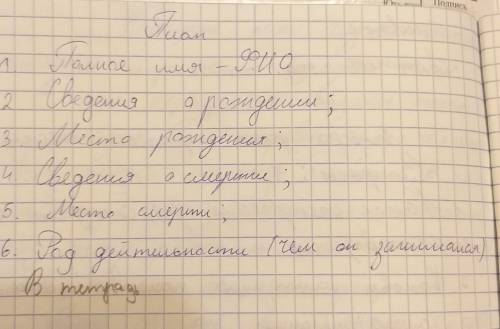 Подпись
План
1 Полное имя - ФИО
2 Сведения о рождении;
3. Место рождения;
4 Сведения о смерти;
5. Место смерти;
6. Род деятельности (чем он занимался)
В тетрадь